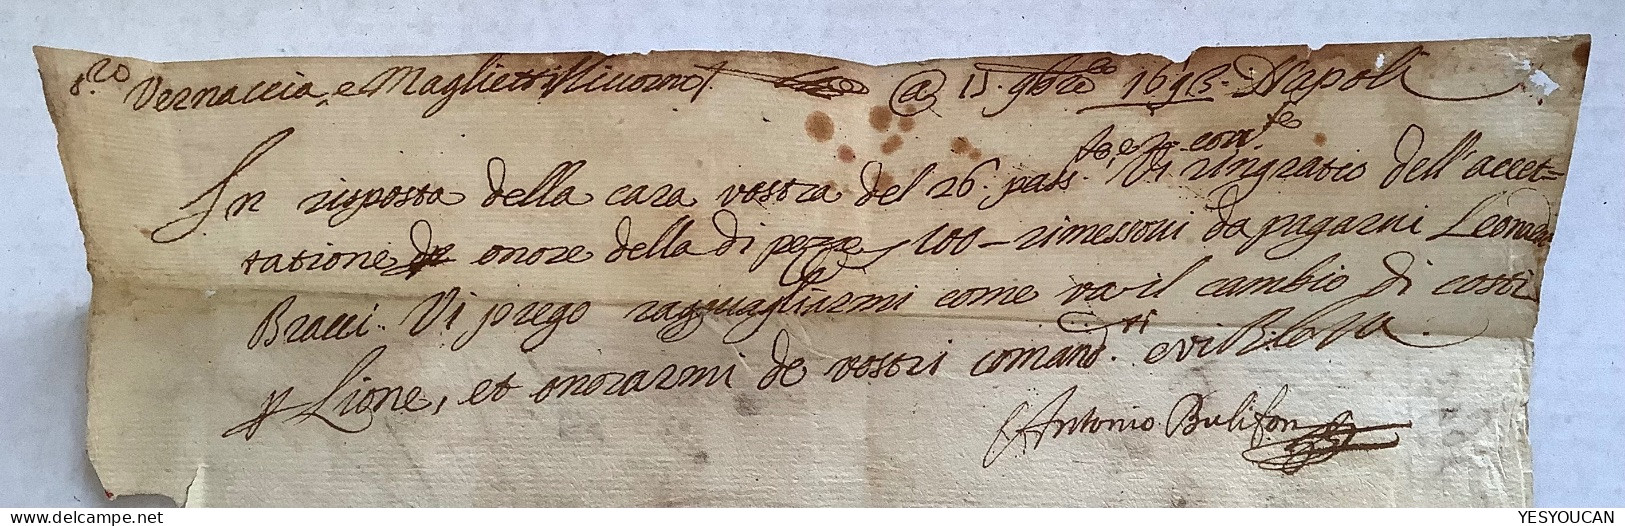 Vernaccia, e Maglietti Livorno. @ 15. 9bre 1695. Napoli
In risposta della cara vostra del 26. pass.to Vi ringratio dell'accet=
tatione onore della di pezze 100 – rimessovi da pagarvi Leonardi
Bracci. Vi prego ragguagliarmi come va il cambio di costi
p Lione, et onorarmi de vostri comand.ti e vi
Antonio Bulifon
YESYOUCAN